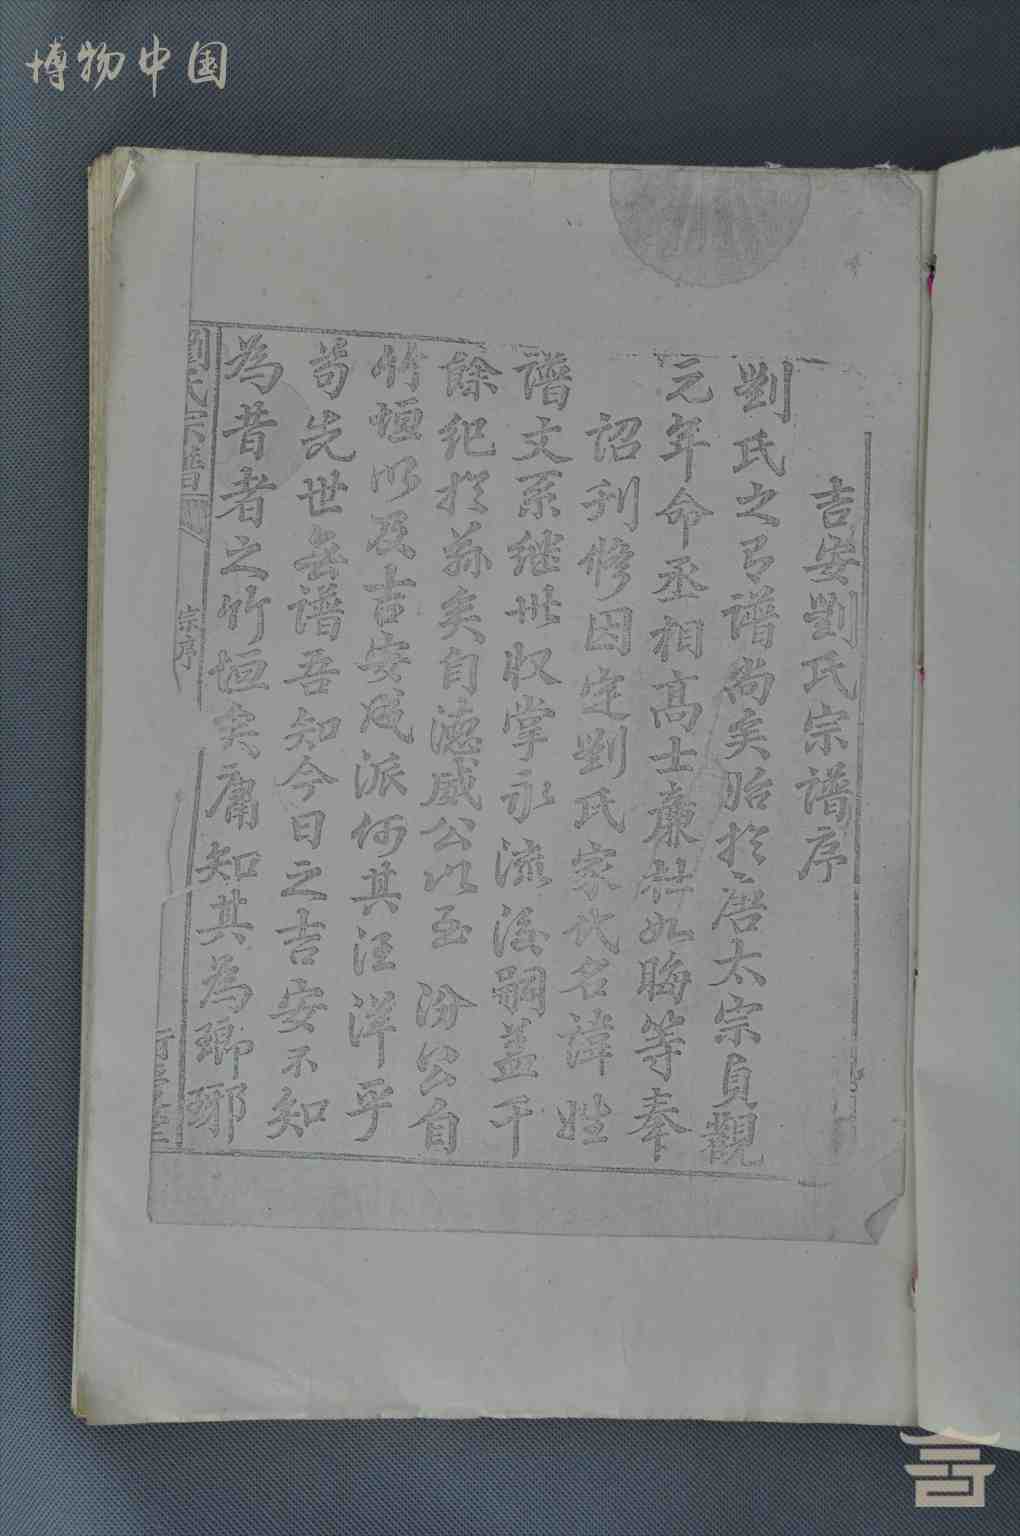 博物中国
吉安劉氏宗譜序
劉氏之有譜尚矣昉於唐太宗貞觀
元年命丞相高士廉杜如晦等奉
詔刊修因定劉氏家代名諱姓
譜文系继世収掌永流後嗣盖千
餘祀於茲矣自德威公以至汾公自
竹垣以及吉安成派何其汪洋乎
苟先世無譜吾知今日之吉安不知
為昔者之竹垣矣庸知其為瑯琊
劉氏宗譜
宗序